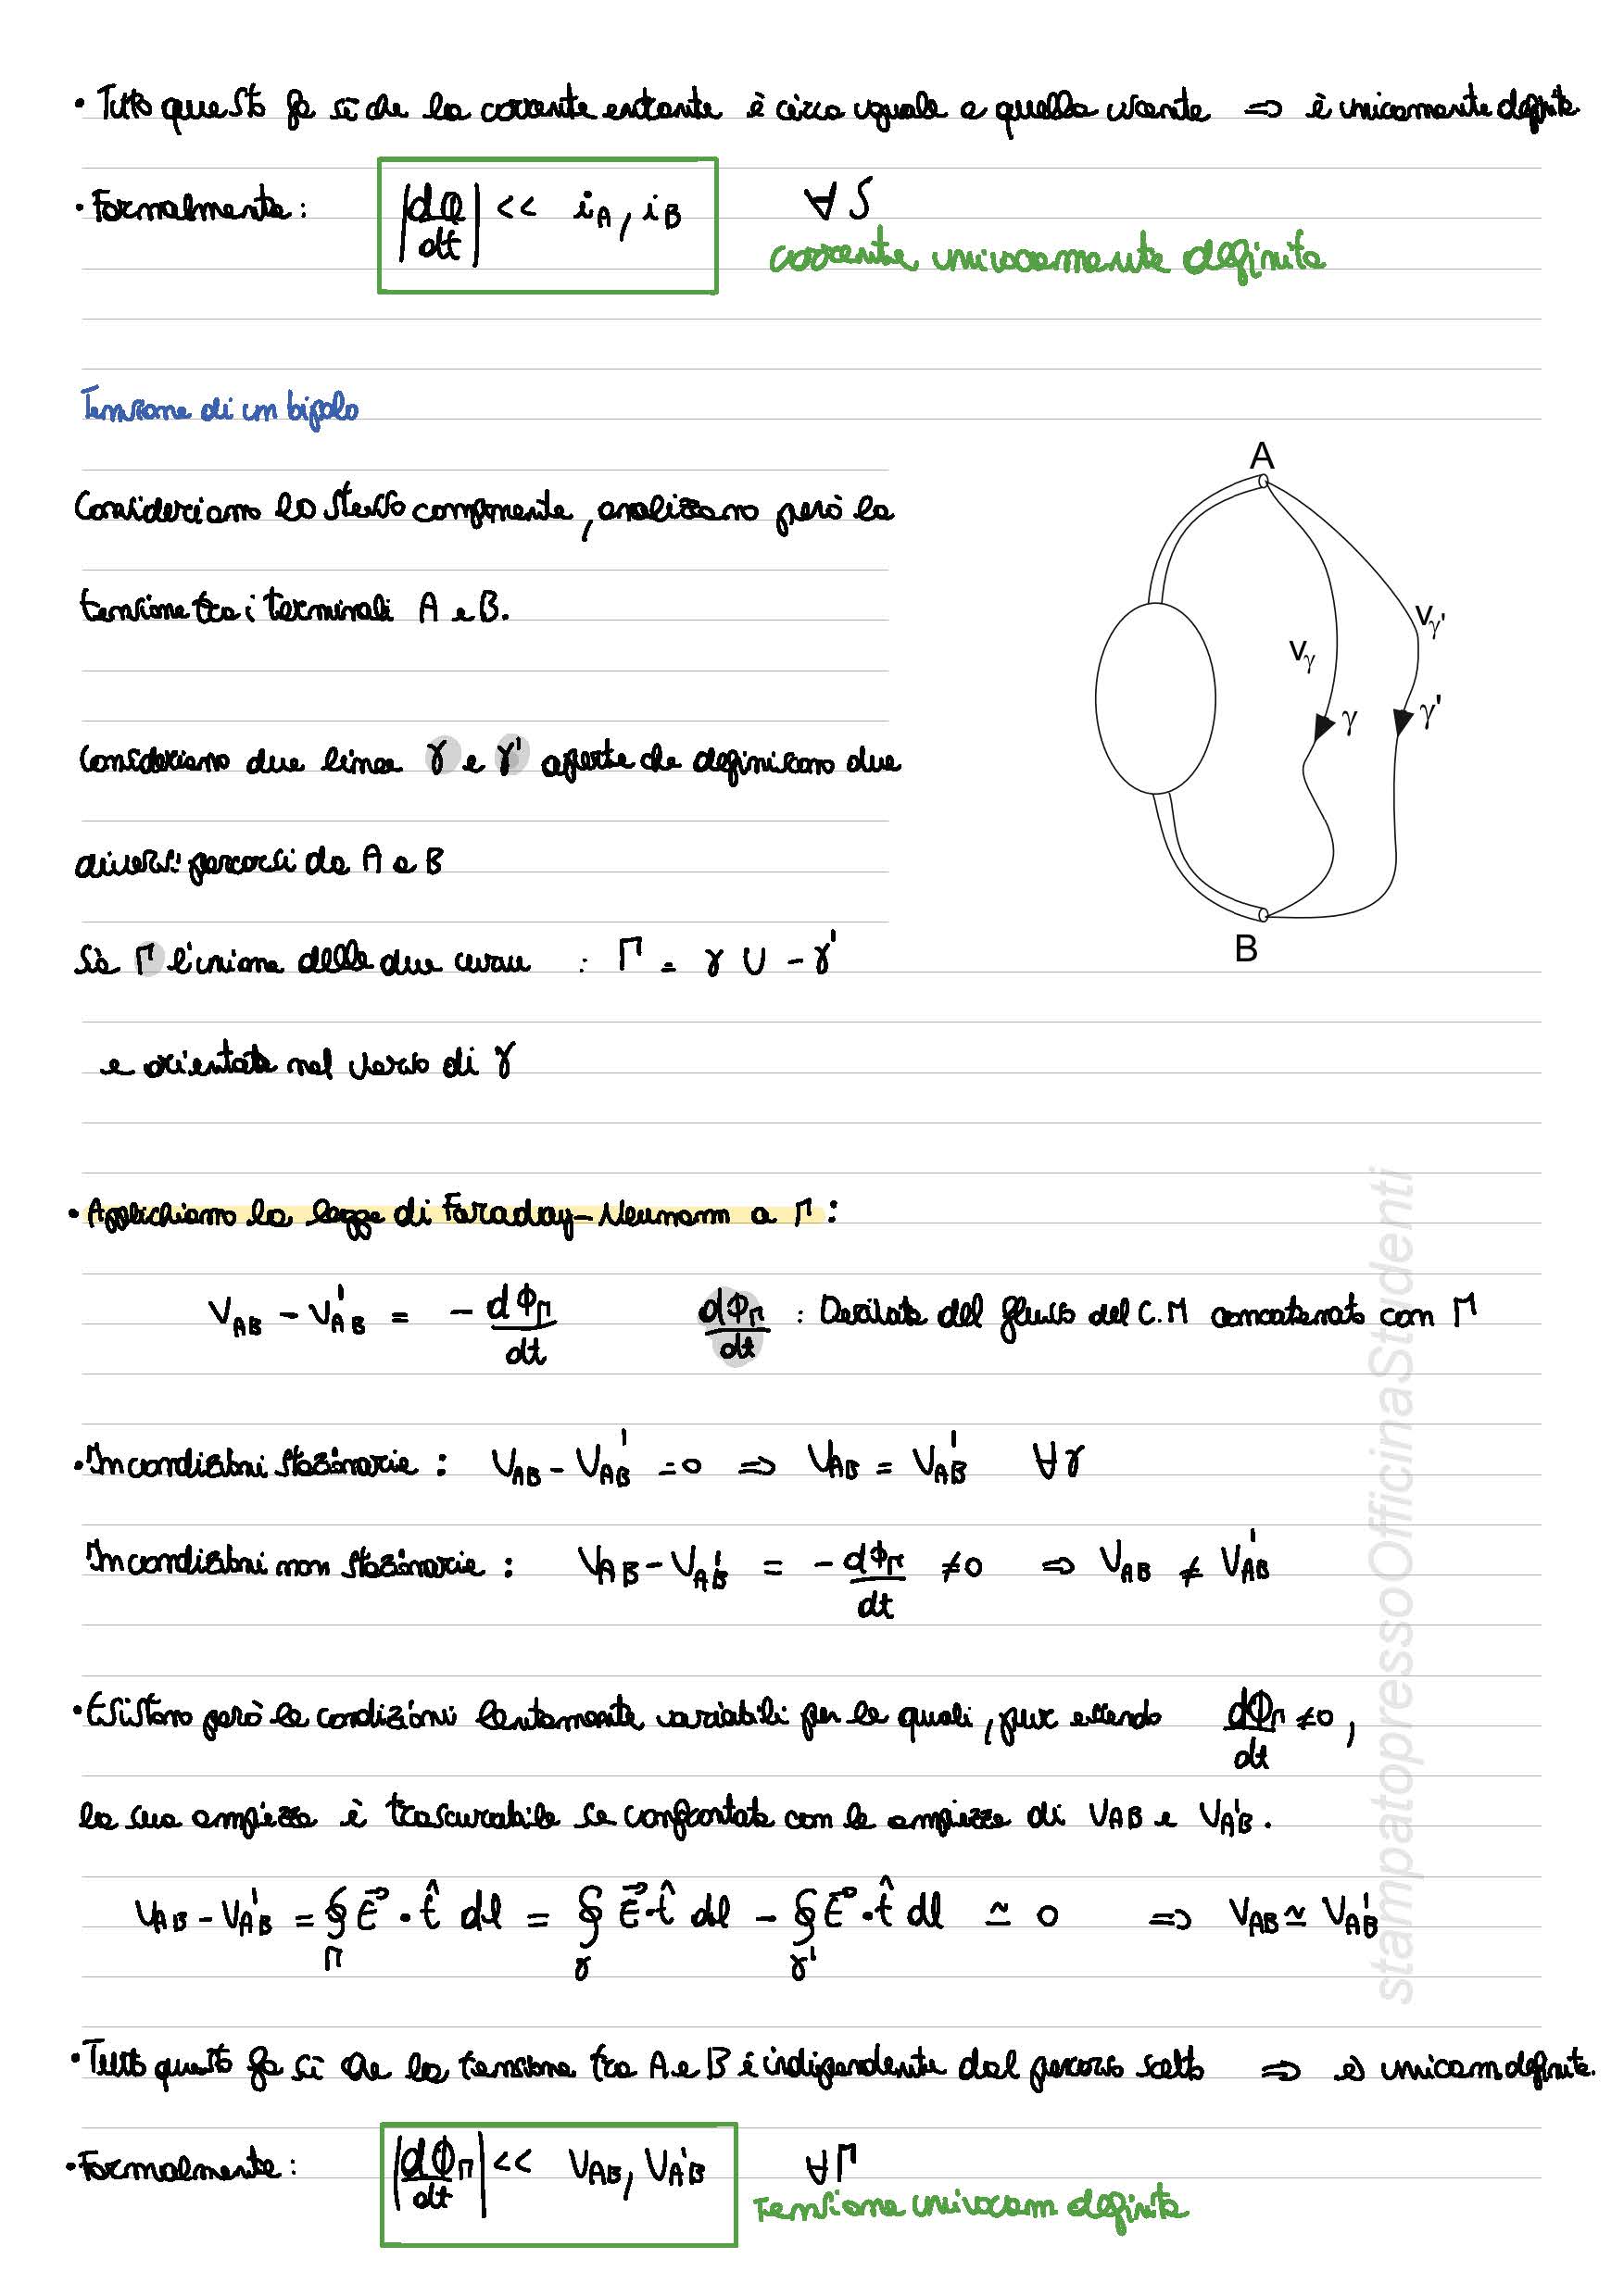 • Tutto questo fa sì che la corrente entrante è circa uguale a quella uscente ⇒ è unicamente definita.
• Formalmente: |dQ/dt| << iA, iB ∀ S
corrente univocamente definita
Tensione di un bipolo
Consideriamo lo stesso componente, analizzano però la
tensione tra i terminali A e B.
Consideriamo due linee γ e γ' aperte che definiscono due
diversi percorsi da A a B
Sia Γ l'unione delle due curve : Γ = γ ∪ -γ'
e orientata nel verso di γ
A
Vγ'
Vγ
γ
γ'
B
• Applichiamo la legge di Faraday-Neumann a Γ:
VAB - V'AB = - dΦΓ/dt dΦΓ/dt : Derivata del flusso del C.M concatenato con Γ
• In condizioni stazionarie: VAB - V'AB = 0 ⇒ VAB = V'AB ∀ γ
In condizioni non stazionarie: VAB - V'AB = - dΦΓ/dt ≠ 0 ⇒ VAB ≠ V'AB
• Esistono però le condizioni lentamente variabili per le quali, pur essendo dΦΓ/dt ≠ 0,
la sua ampiezza è trascurabile se confrontata con le ampiezze di VAB e V'AB.
VAB - V'AB = ∮Γ E⃗ · t̂ dl = ∮γ E⃗ · t̂ dl - ∮γ' E⃗ · t̂ dl ≃ 0 ⇒ VAB ≃ V'AB
• Tutto questo fa sì che la tensione tra A e B è indipendente dal percorso scelto ⇒ è unicam definita.
• Formalmente: |dΦΓ/dt| << VAB, V'AB ∀ Γ
Tensione univocam definita
stampatopressoOfficinaStudenti